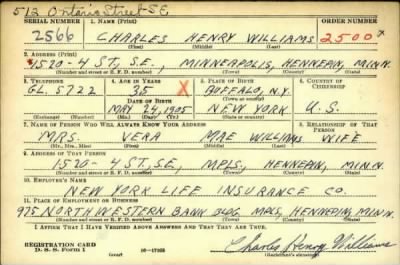 512 Ontario Street S.E.
SERIAL NUMBER 1. NAME (Print) ORDER NUMBER
2566 CHARLES HENRY WILLIAMS 2500
(First) (Middle) (Last)
2. ADDRESS (Print)
1520-4 ST, S.E., MINNEAPOLIS, HENNEPIN, MINN.
(Number and street or R. F. D. number) (Town) (County) (State)
3. TELEPHONE 4. AGE IN YEARS 5. PLACE OF BIRTH 6. COUNTRY OF CITIZENSHIP
GL. 5722 35 X BUFFALO, N.Y.
DATE OF BIRTH (Town or county)
MAY 24, 1905 NEW YORK U.S.
(Exchange) (Number) (Mo.) (Day) (Yr.) (State or country)
7. NAME OF PERSON WHO WILL ALWAYS KNOW YOUR ADDRESS 8. RELATIONSHIP OF THAT PERSON
MRS. VERA MAE WILLIAMS WIFE
(Mr., Mrs., Miss) (First) (Middle) (Last)
9. ADDRESS OF THAT PERSON
1520-4 ST, SE, MPLS, HENNEPIN, MINN.
(Number and street or R. F. D. number) (Town) (County) (State)
10. EMPLOYER'S NAME
NEW YORK LIFE INSURANCE CO.
11. PLACE OF EMPLOYMENT OR BUSINESS
975 NORTHWESTERN BANK BLDG MPLS, HENNEPIN, MINN.
(Number and street or R. F. D. number) (Town) (County) (State)
I AFFIRM THAT I HAVE VERIFIED ABOVE ANSWERS AND THAT THEY ARE TRUE.
REGISTRATION CARD
D. S. S. Form 1 (over) Charles Henry Williams
(Registrant's signature)